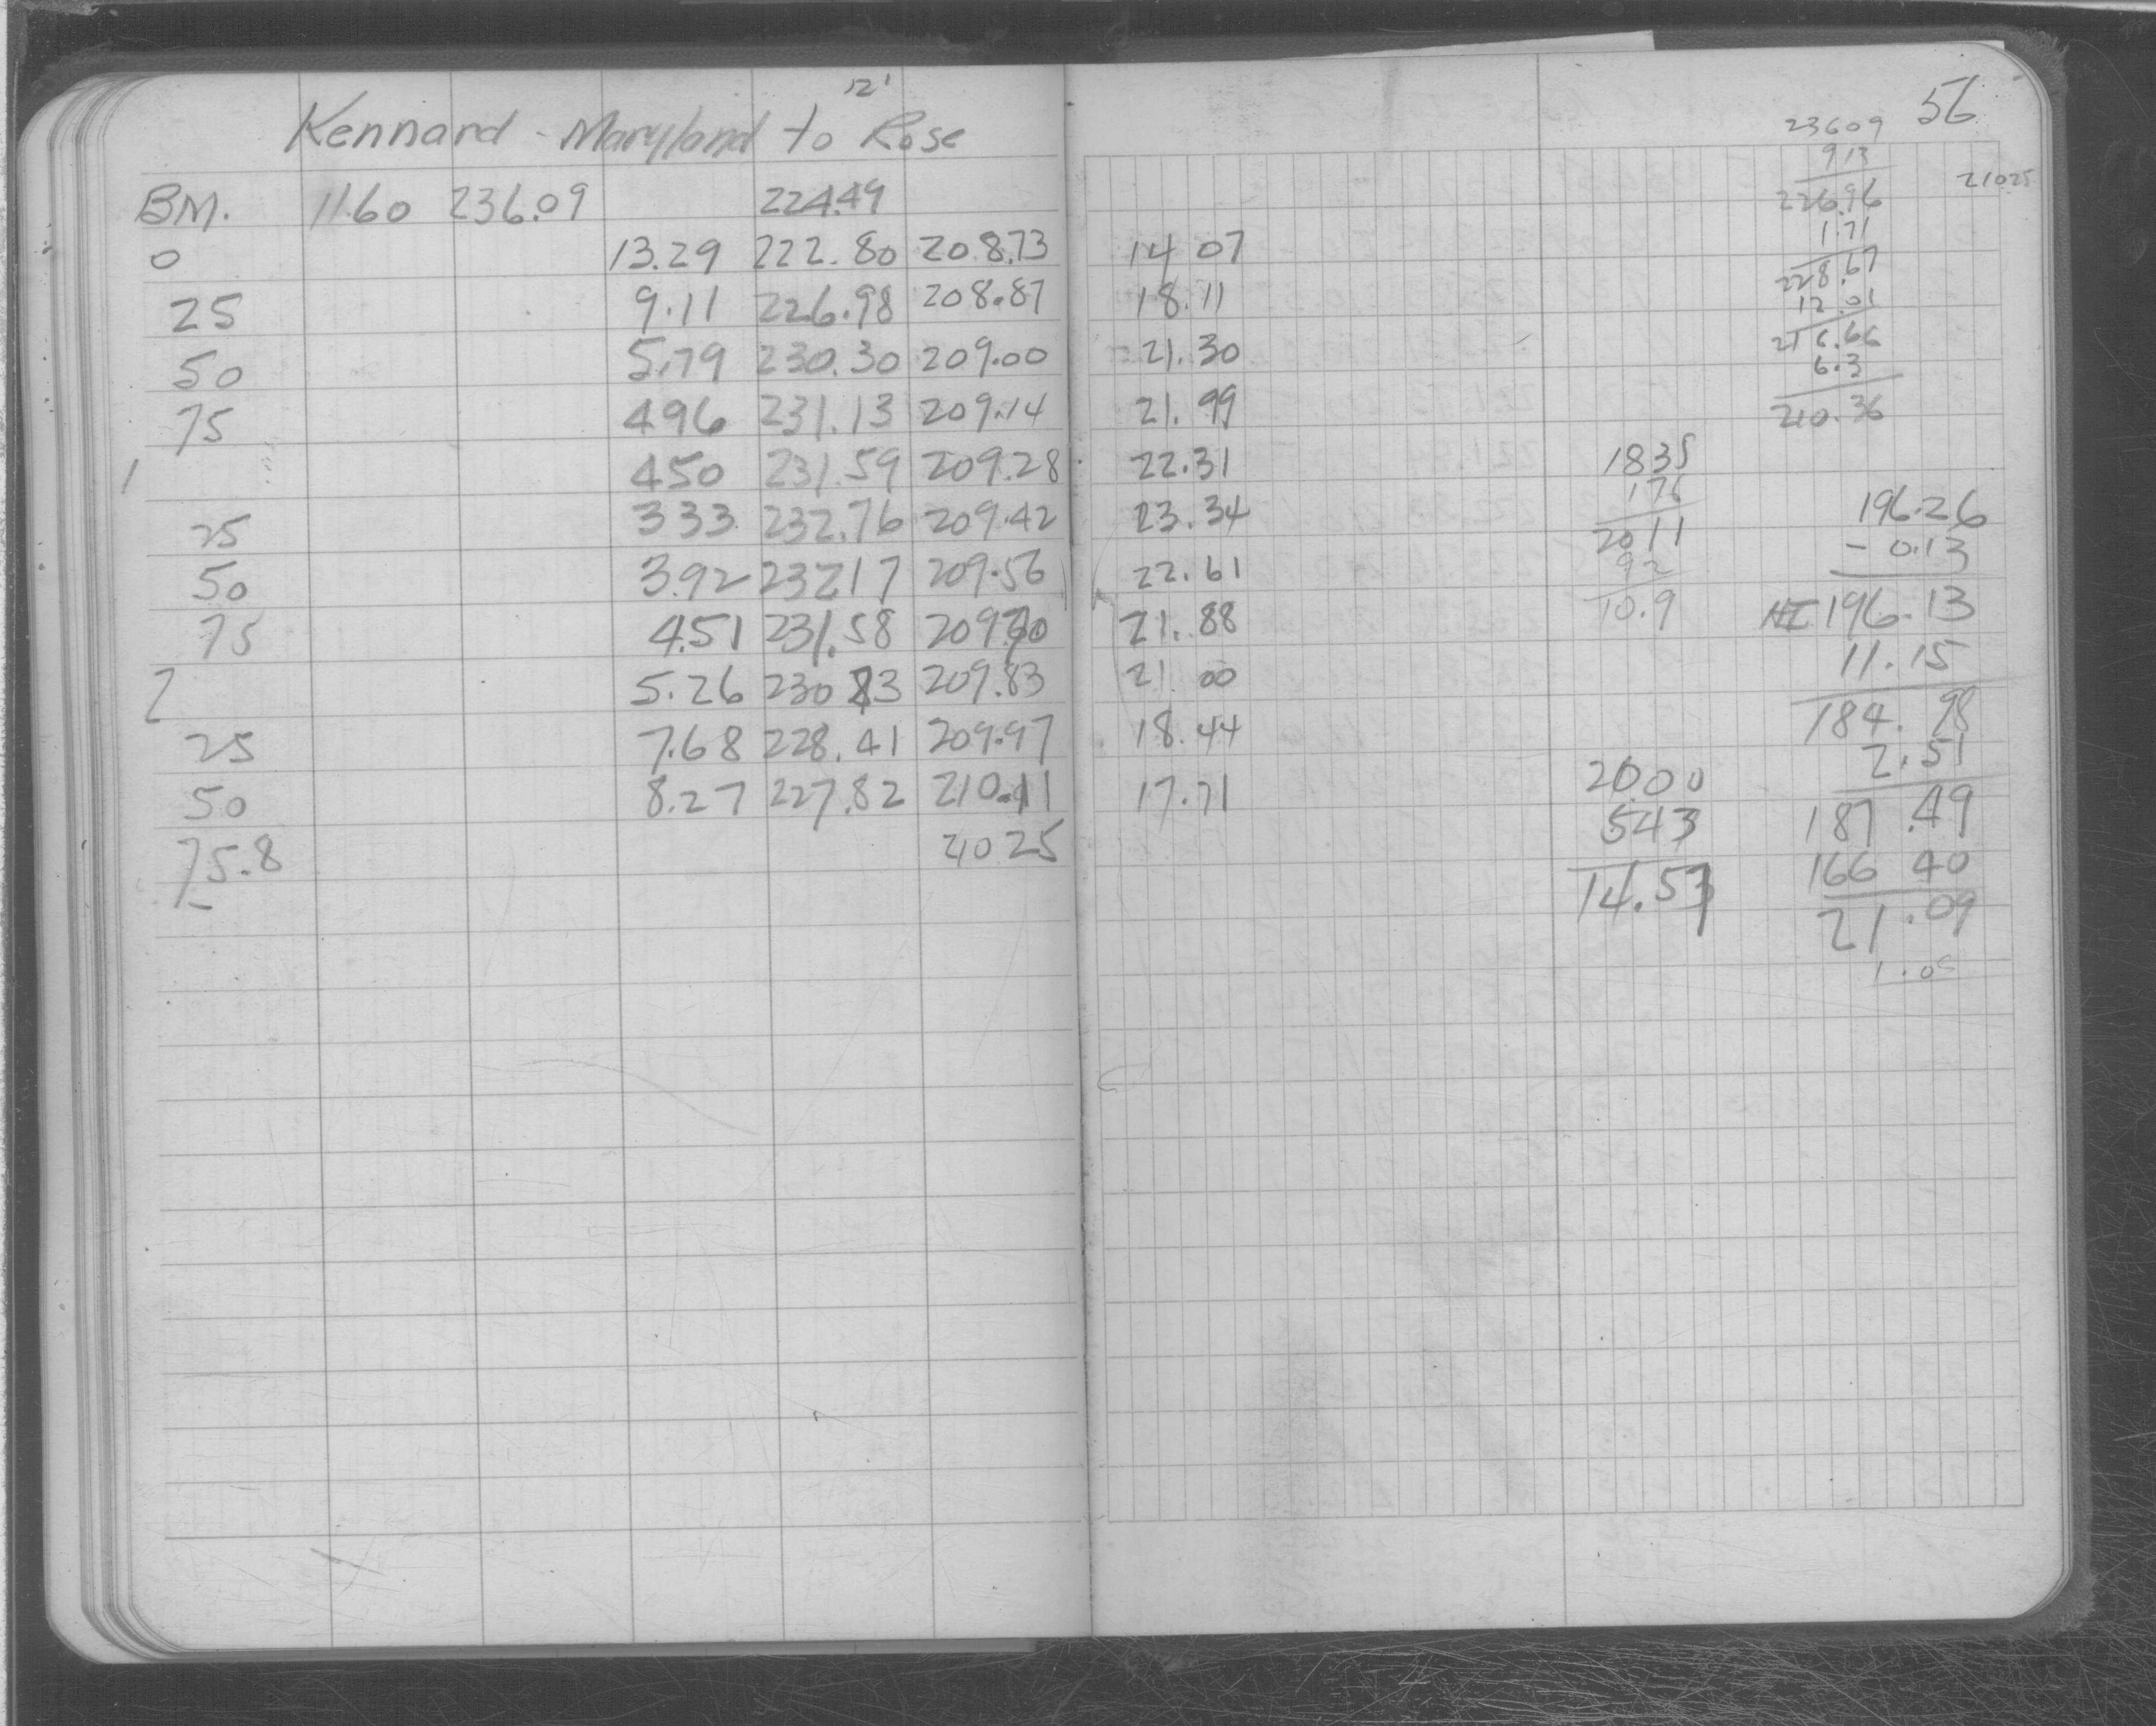 12'
Kennard - Maryland to Rose
BM. 11.60 236.09 224.49
0 13.29 222.80 208.73
25 9.11 226.98 208.87
50 5.79 230.30 209.00
75 4.96 231.13 209.14
1 4.50 231.59 209.28
25 3.33 232.76 209.42
50 3.92 232.17 209.56
75 4.51 231.58 209.70
2 5.26 230.83 209.83
25 7.68 228.41 209.97
50 8.27 227.82 210.11
75.8 210 25
56
14 07
18.11
21.30
21.99
22.31
23.34
22.61
21.88
21 00
18.44
17.71
1835
176
2011
92
10.9
20.00
543
14.57
23609
913
226.96
1.71
228.67
12.01
216.66
6.3
210.36
21025
196.26
- 0.13
HI 196.13
11.15
184.98
2.51
187.49
166 40
21.09